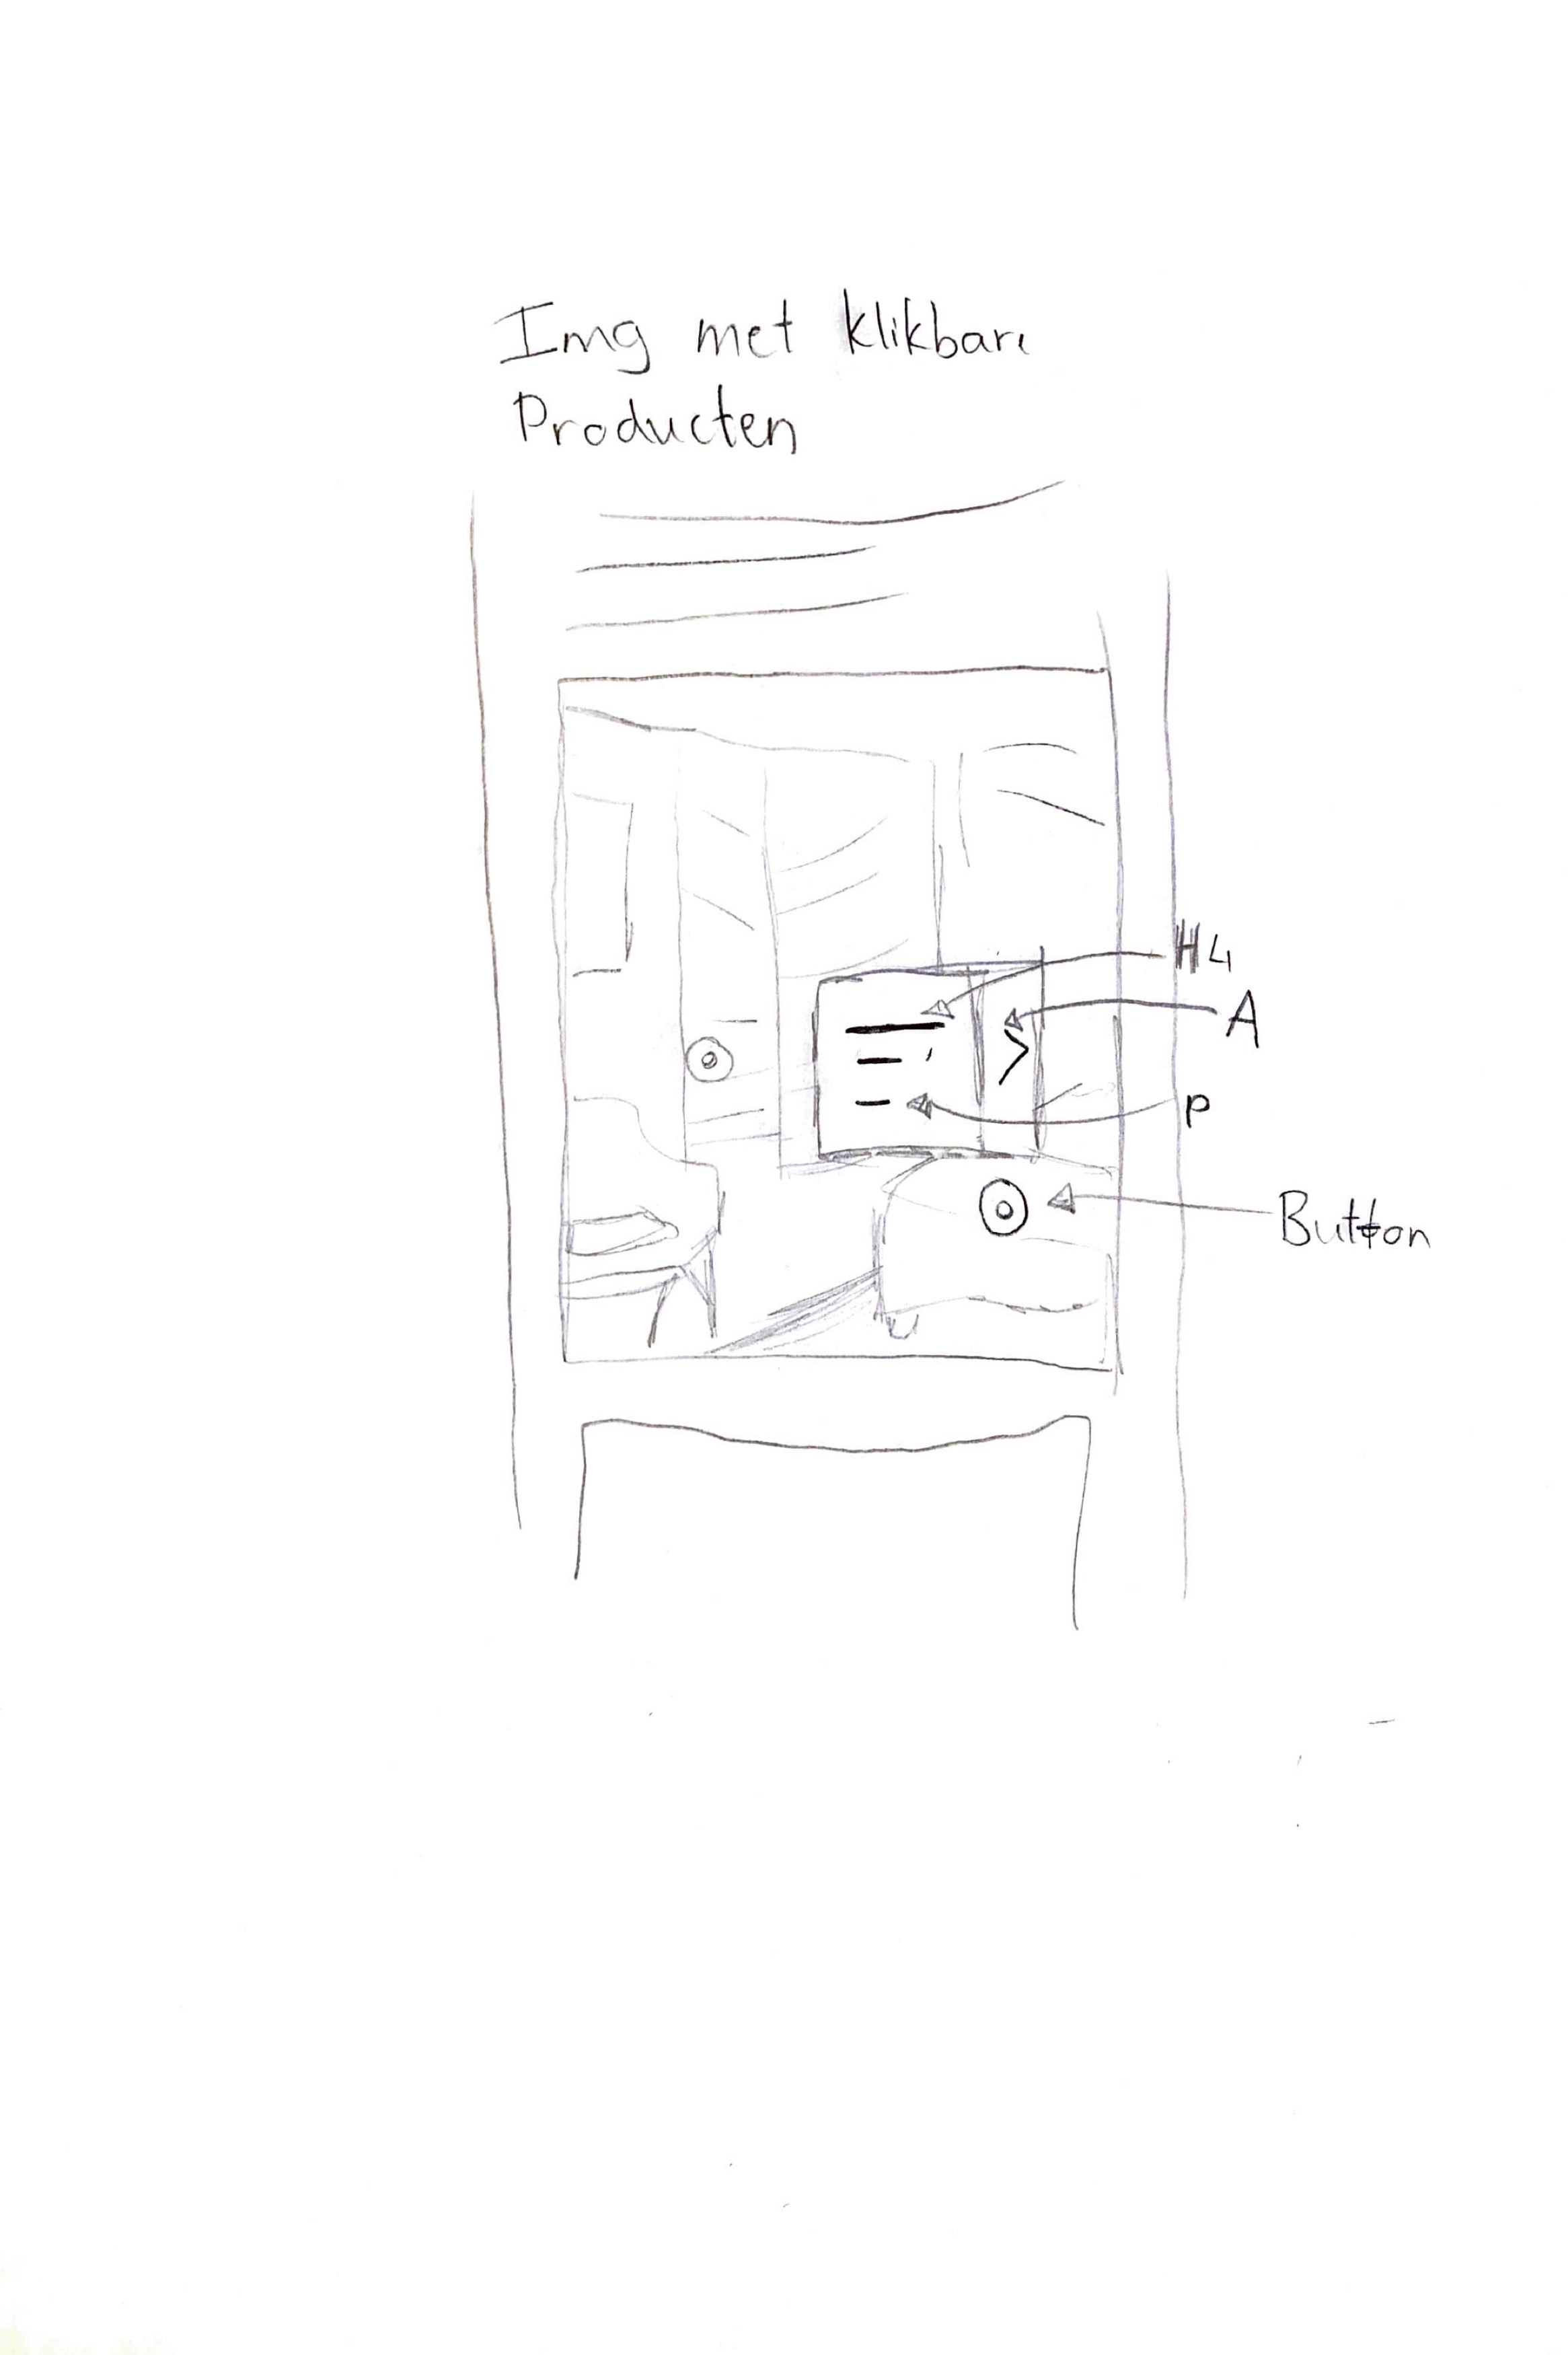 Img met klikbare
Producten
H4
A
P
Button